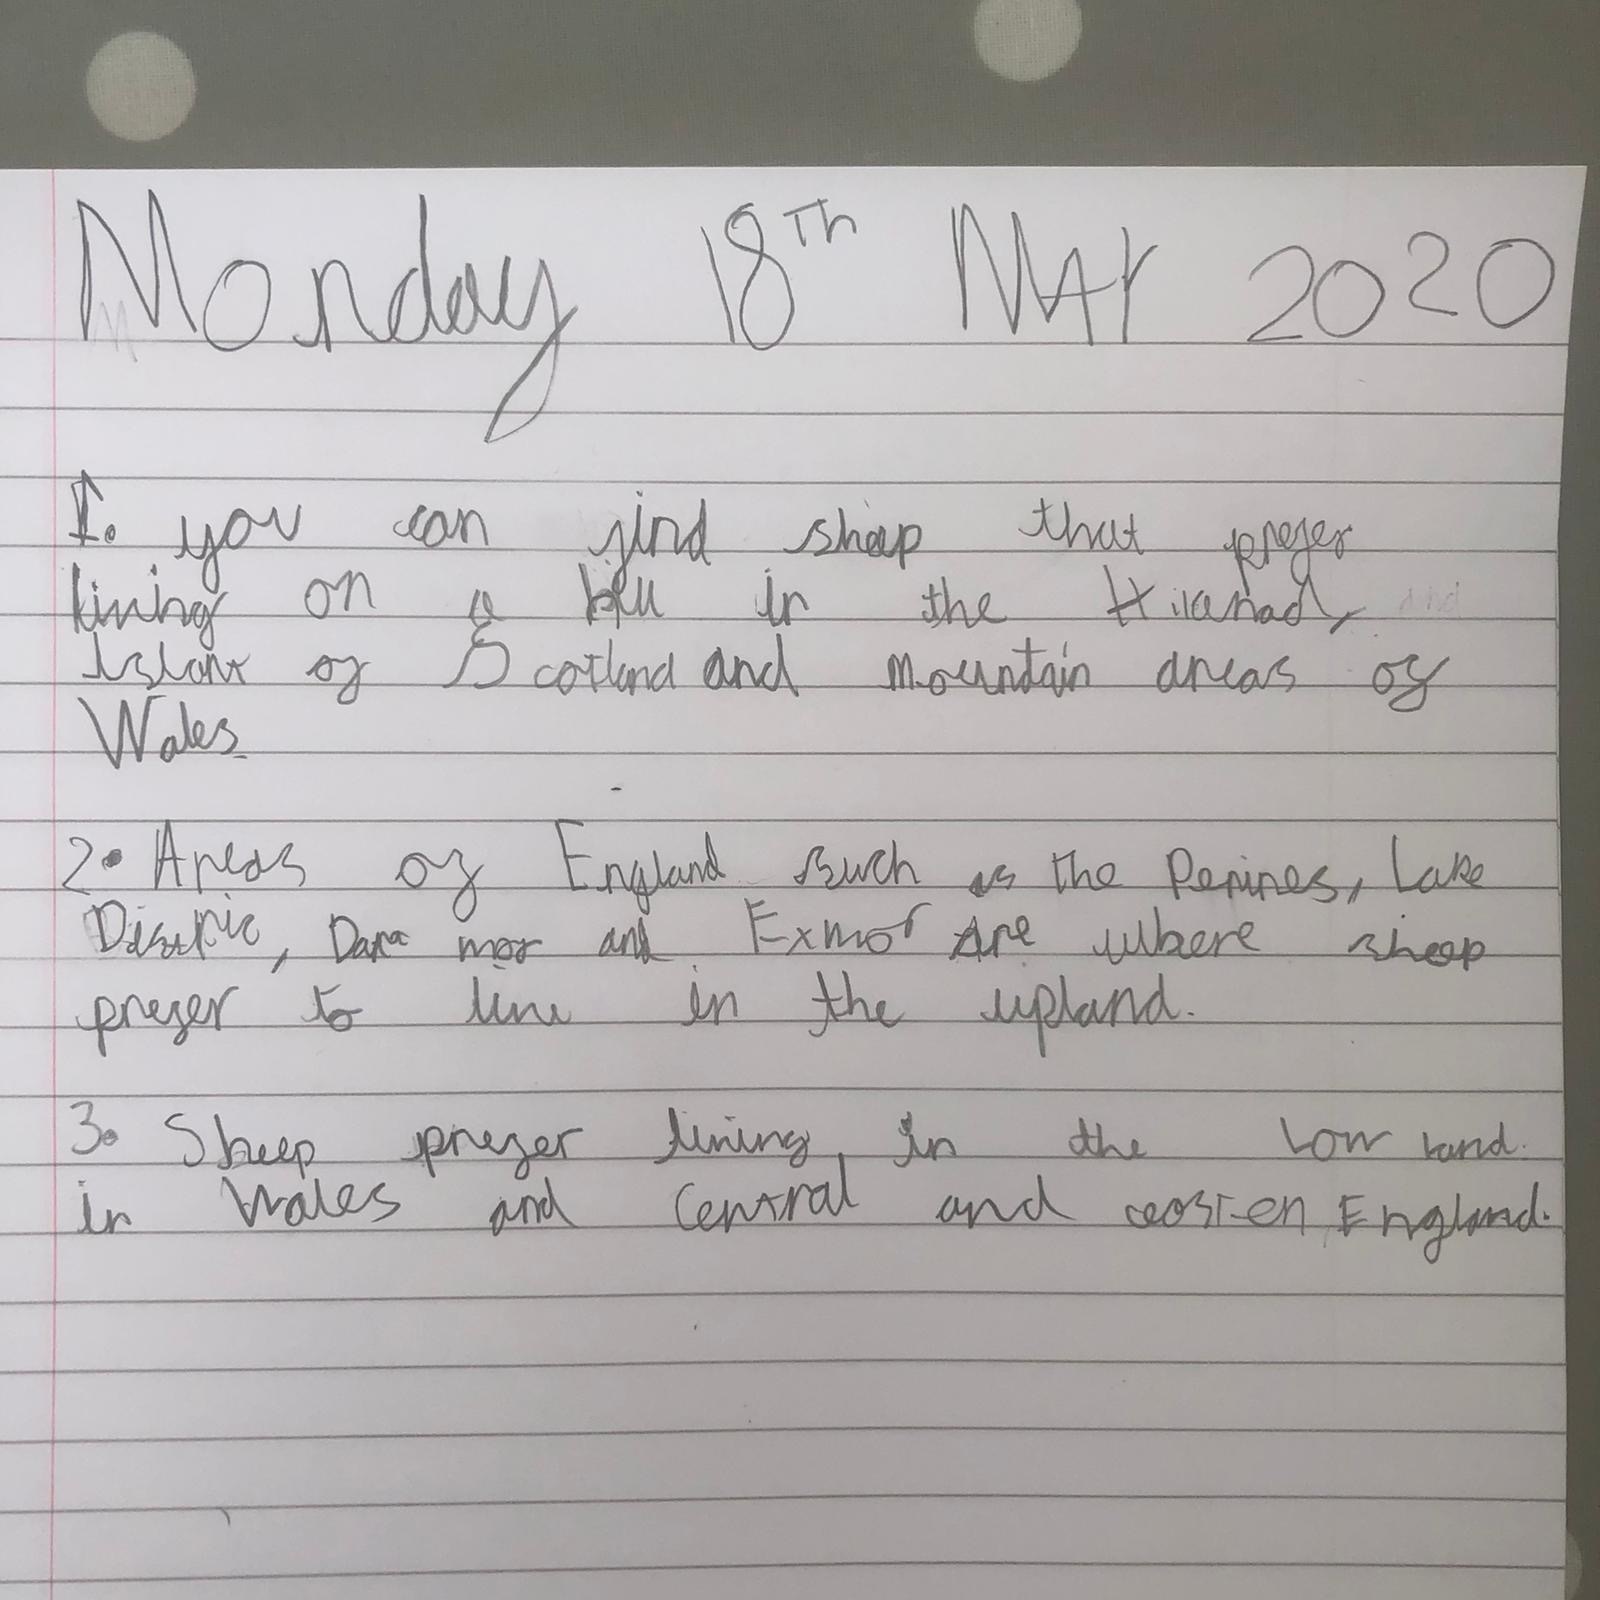 Monday 18Th MAY 2020
1. you can find sheep that prefer
living on a hill in the
of Scotland and mountain areas of
Wales.
2. Areas of England such as the Penines, Lake
and Exmor are where sheep
prefer to live in the upland.
3. Sheep prefer living in the Low land.
in Wales and Central and England.